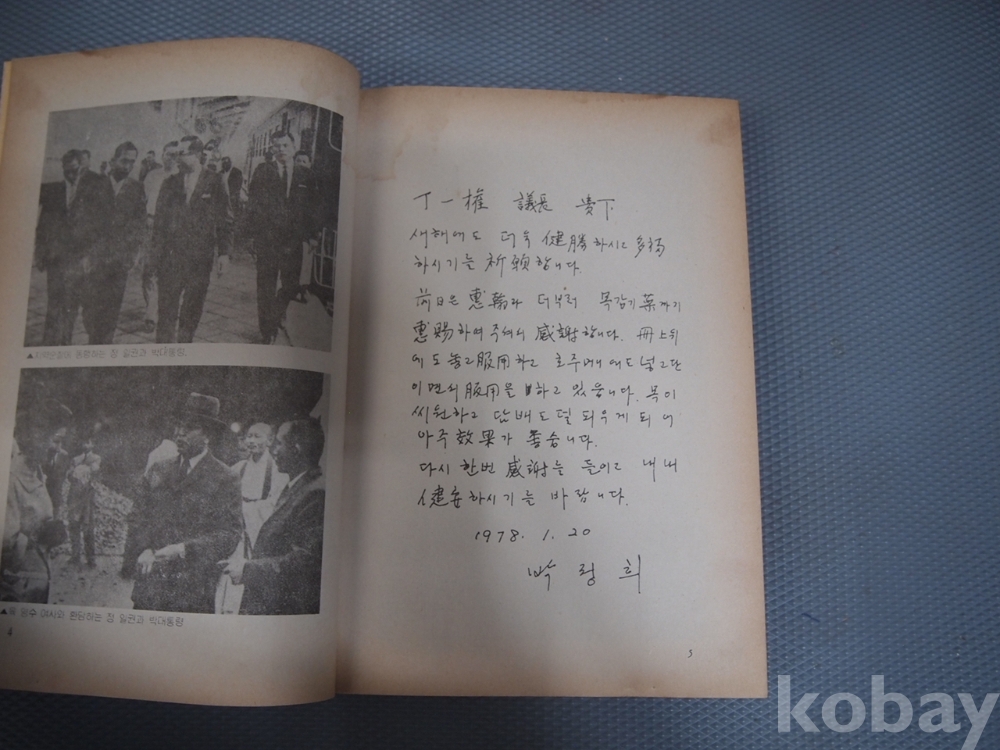 정 일권과 박대통령.
여사와 환담하는 정 일권과 박대통령
4
丁一權 議長 貴下
새해에도 더욱 健勝하시고 多福
하시기를 祈願합니다.
前日은 惠翰과 더부러 목감기 藥까지
惠賜하여 주셔서 感謝합니다. 冊上위
에도 놓고 服用하고 호주머니에도 넣고 단
이면서 服用을 하고 있읍니다. 목이
씨원하고 담배도 덜 피우게 되니
아주 效果가 좋습니다.
다시 한번 感謝를 들이고 내내
健安하시기를 바랍니다.
1978. 1. 20
박정희
5
kobay